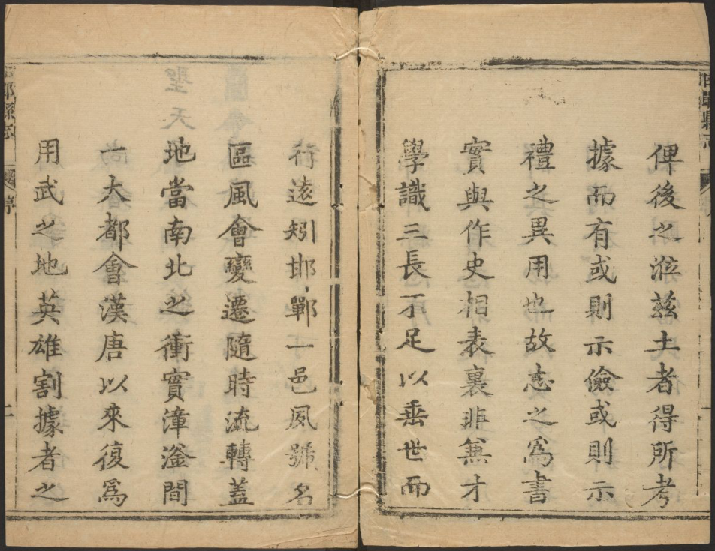 俾後之涖茲土者得所考
據而有或則示儉或則示
禮之異用也故志之為書
實與作史相表裏非無才
學識三長不足以垂世而
行遠矧邯鄲一邑夙號名
區風會變遷隨時流轉蓋
地當南北之衝實漳滏間
一大都會漢唐以來復為
用武之地英雄割據者之